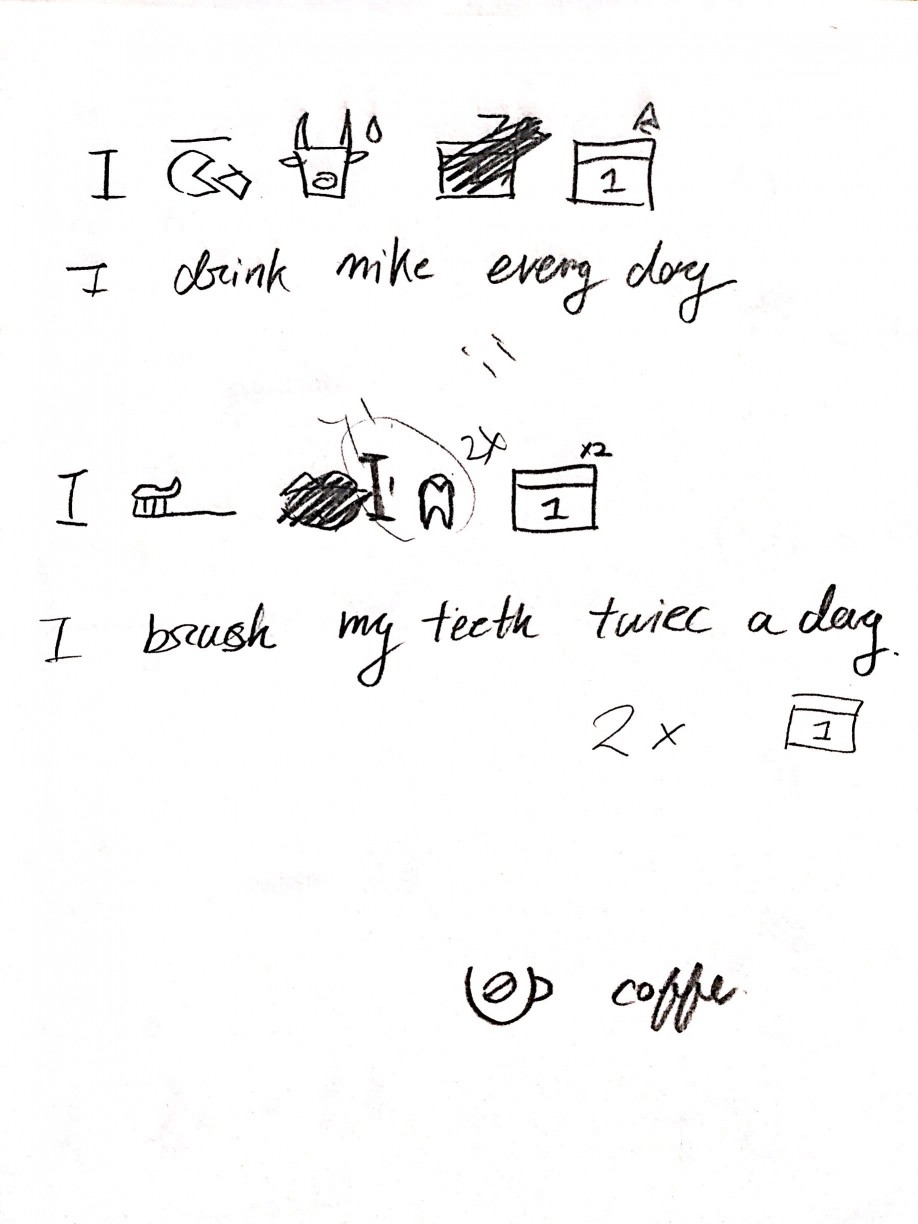 I 1
I drink mike every day
I I' 2x 1 x2
I brush my teeth twiec a day.
2 x 1
coffe.